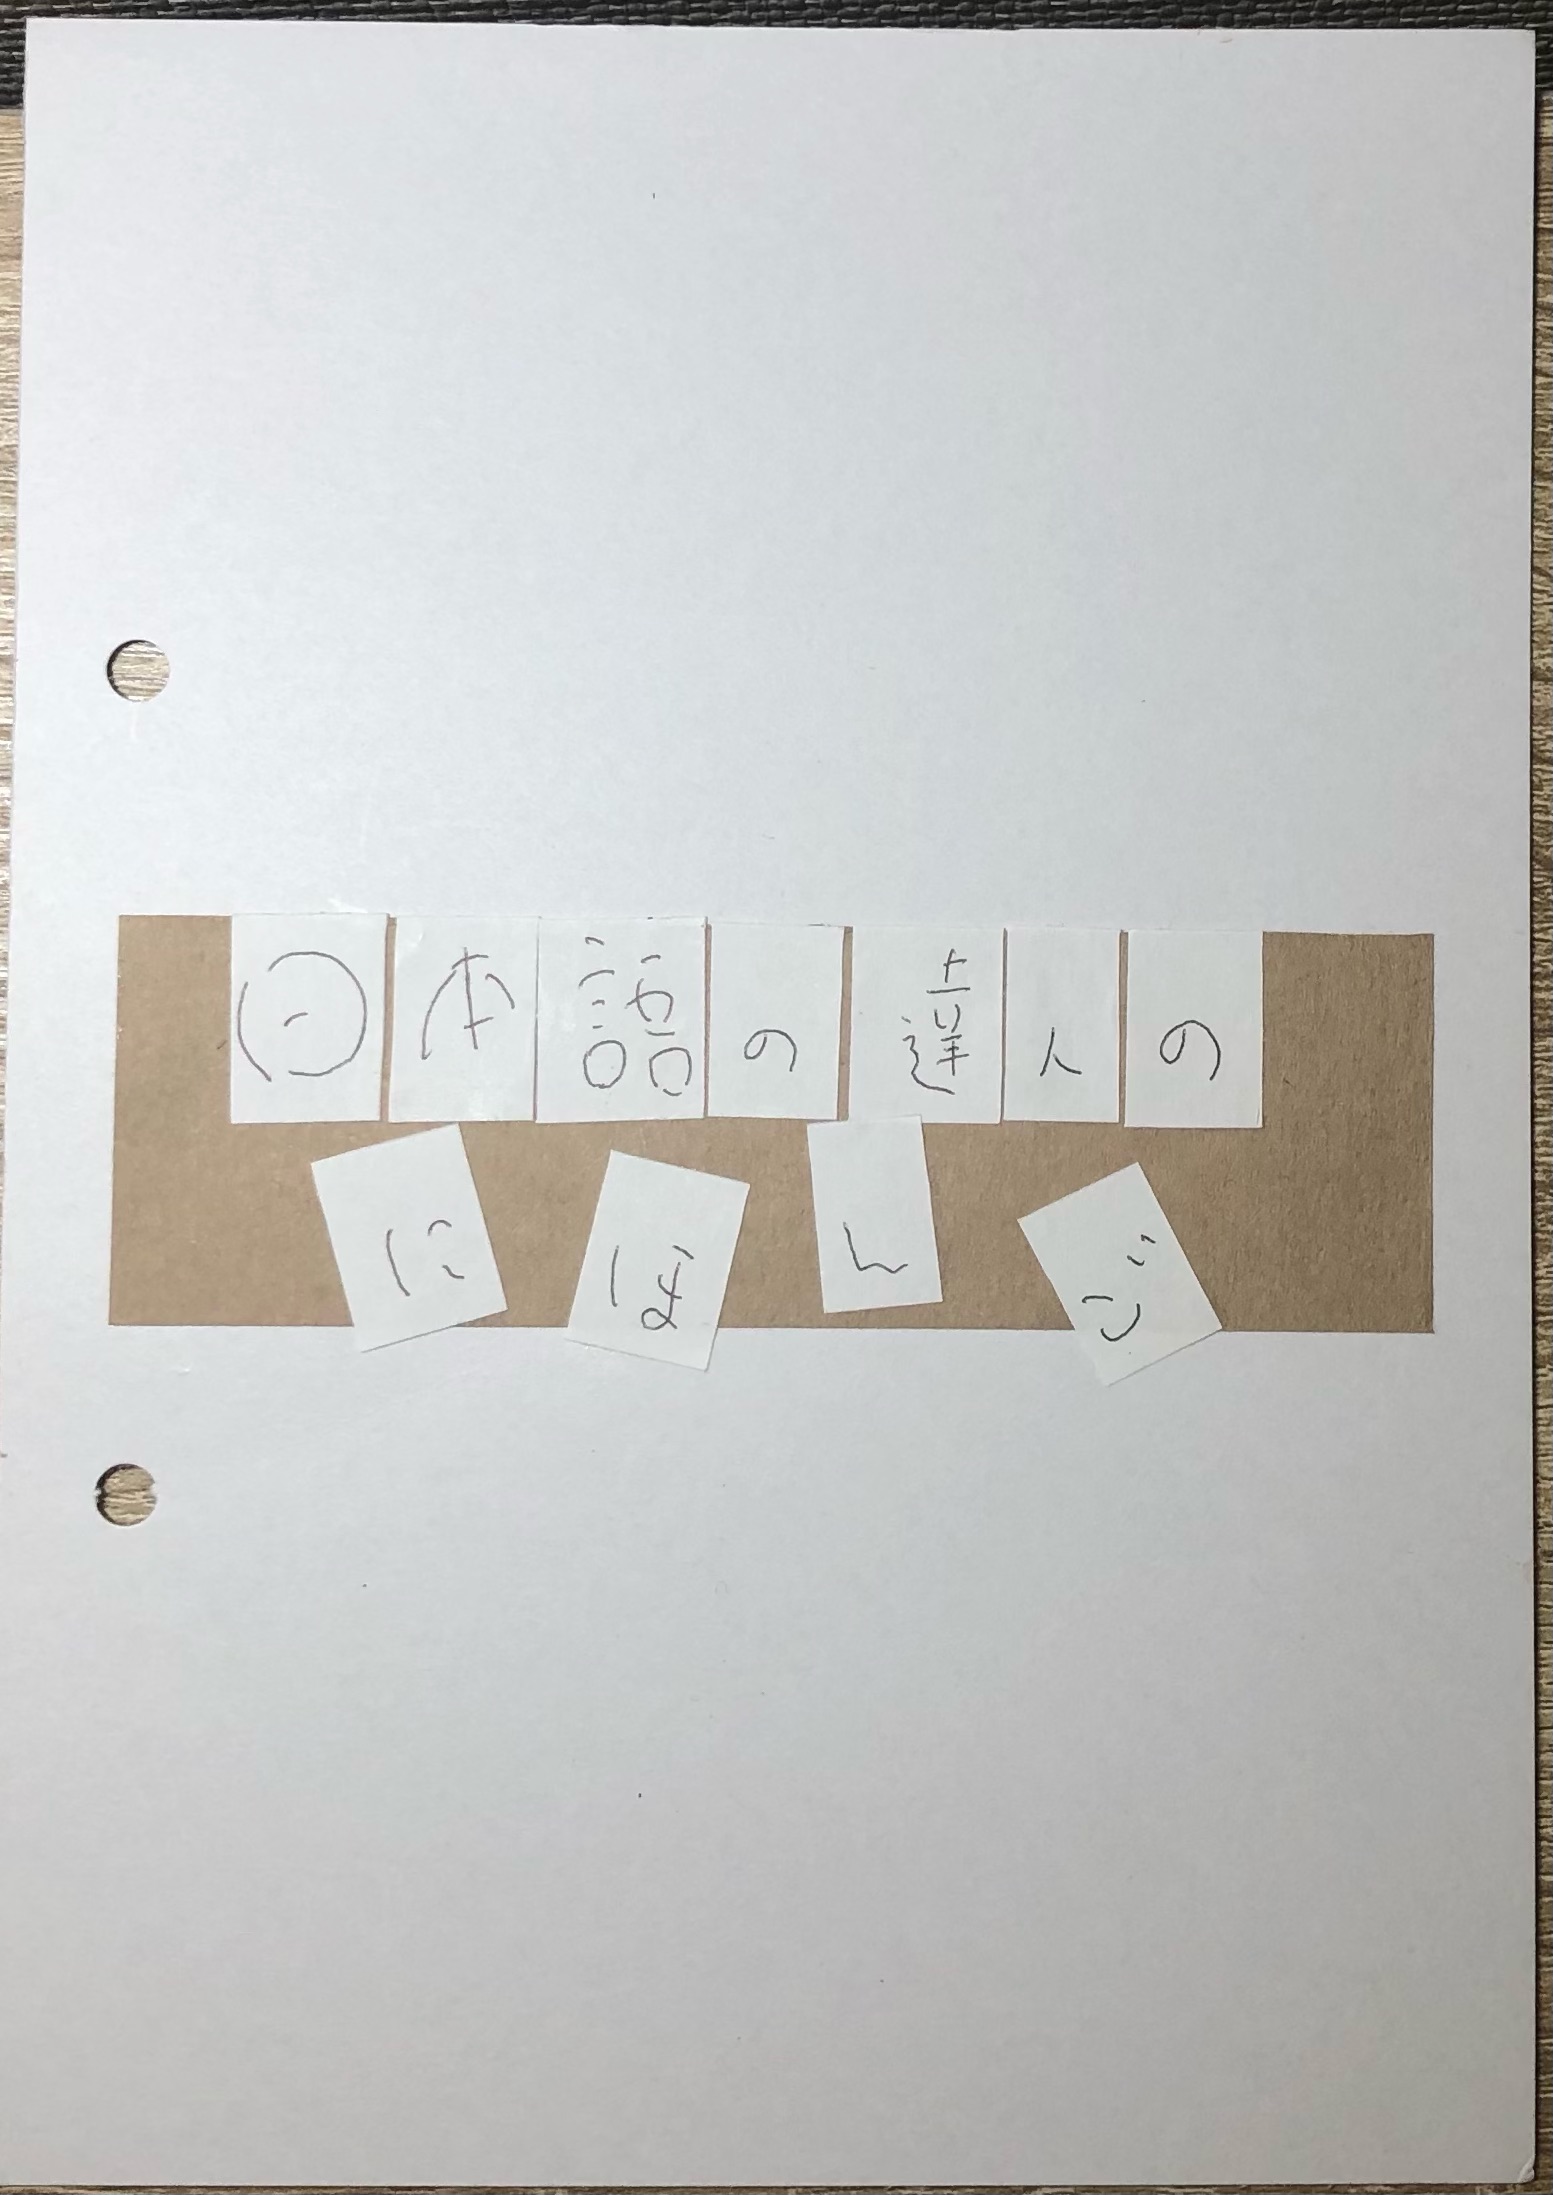 日本語の達人の
にほんご